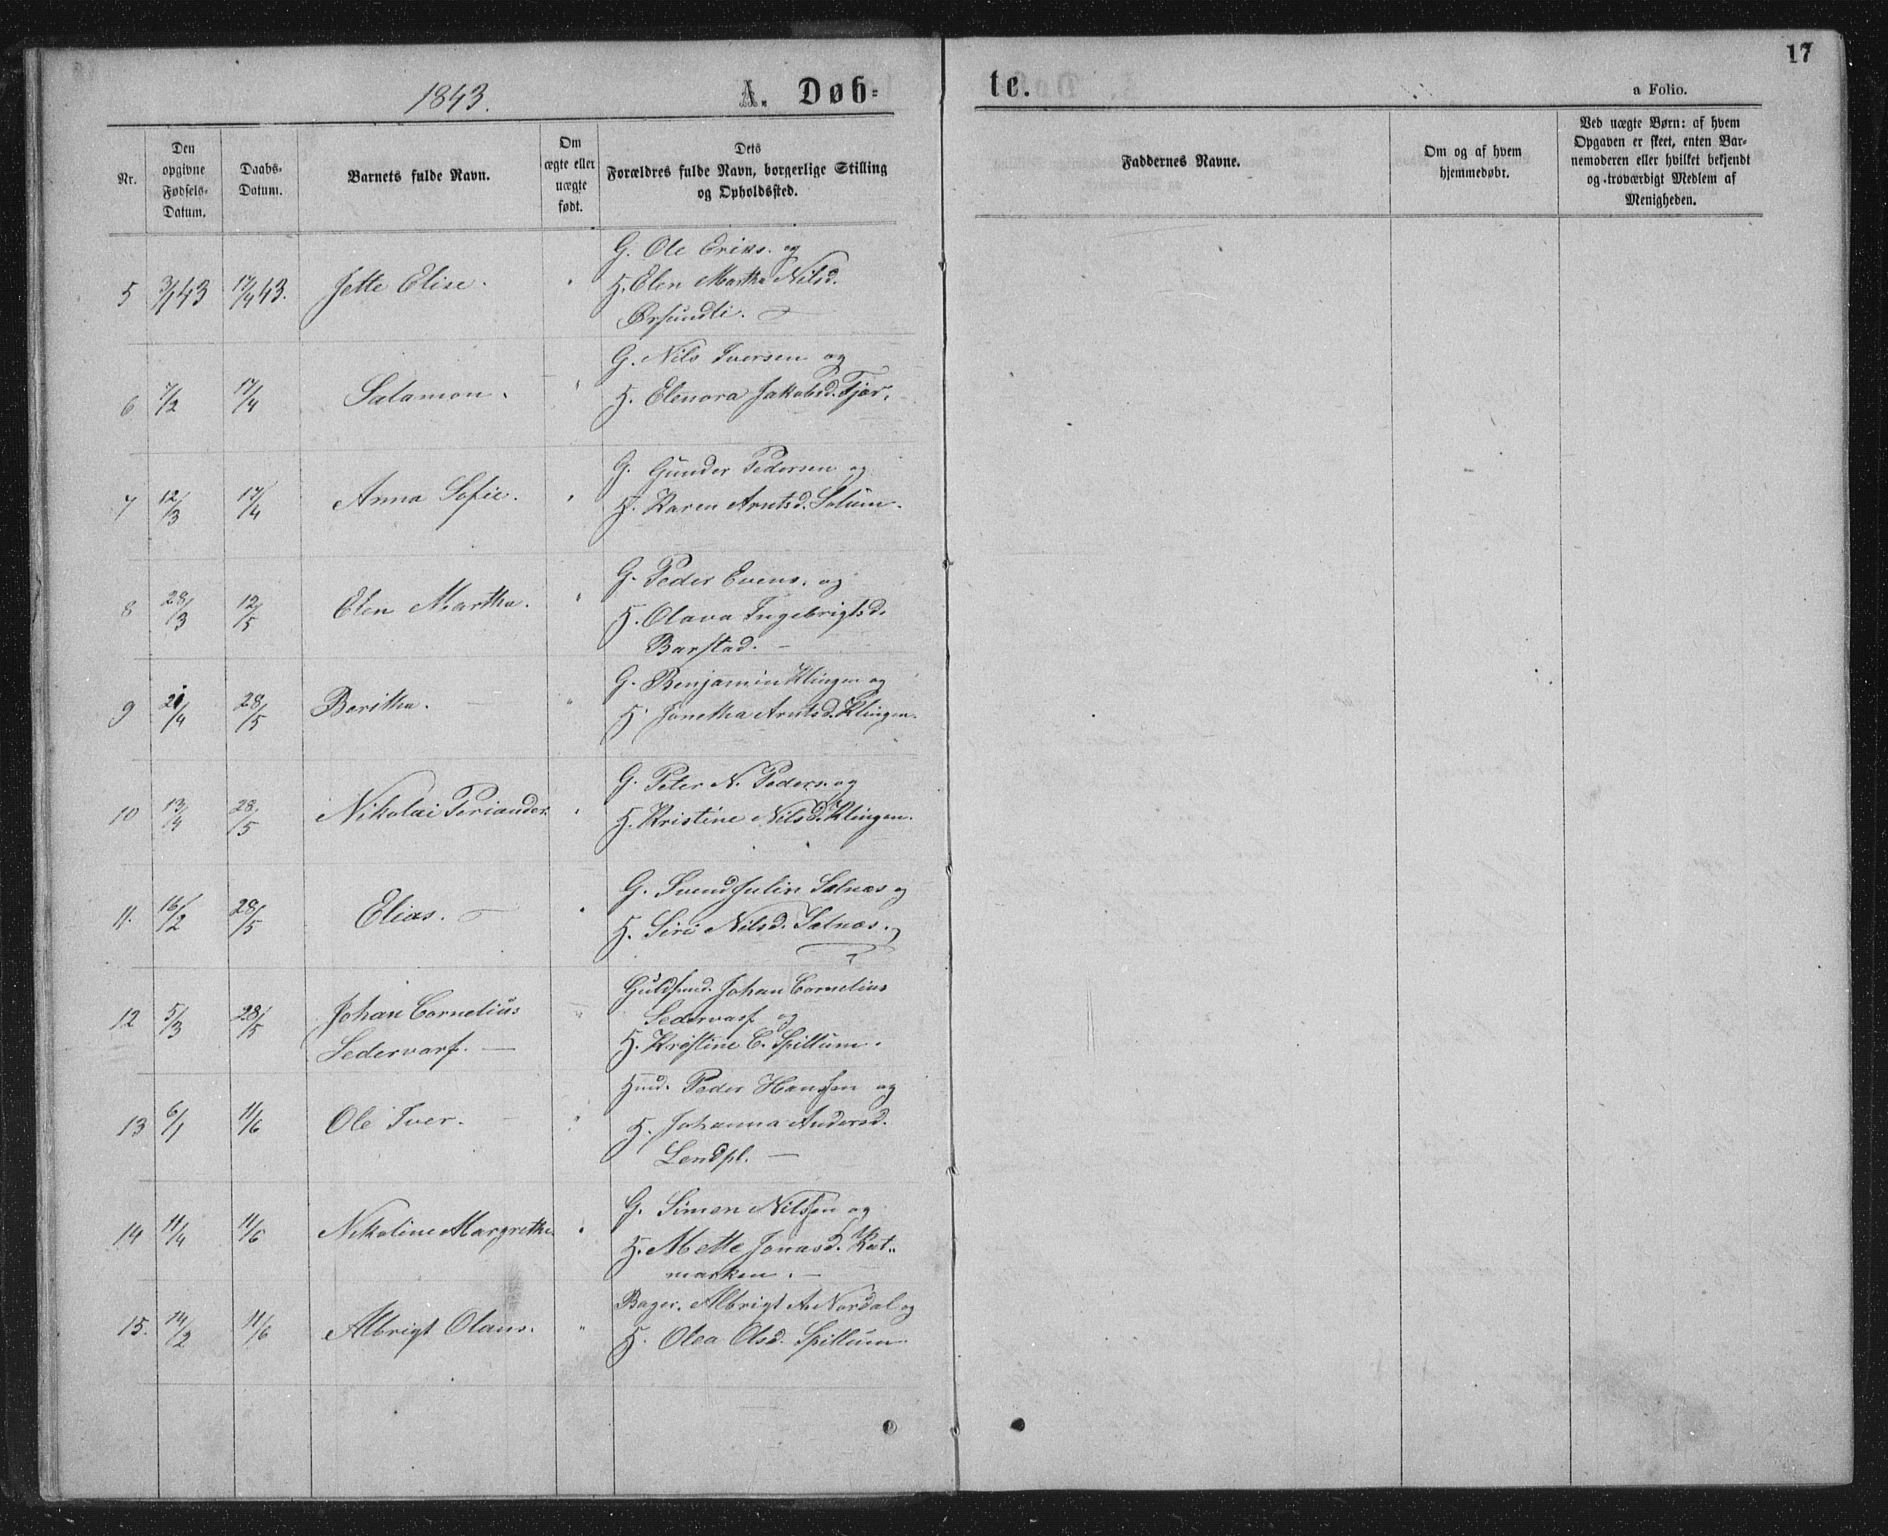 1843.
A. Døb-
te.
17
a Folio.
Nr.
Den opgivne Fødsels-Datum.
Daabs-Datum.
Barnets fulde Navn.
Om ægte eller uægte født.
Dets Forældres fulde Navn, borgerlige Stilling og Opholdssted.
Faddernes Navne.
Om og af hvem hjemmedøbt.
Ved uægte Børn: af hvem Opgaven er skeet, enten Barnemoderen eller hvilket bekjendt og troværdigt Medlem af Menigheden.
G. Ole Eriks. og
5 3/1 43 17/4 43. Jette Elise. H. Elen Martha Nilsd.
G. Nils Iversen og
6 7/2 17/4 Salamon. H. Elenora Jakobsd. Tjær.
G. Gunder Pedersen og
7 12/3 17/4 Anna Sofie. H. Karen Arntsd. Solum.
G. Peder Evens. og
8 28/3 12/5 Elen Martha. H. Olava Ingebrigtsd.
Barstad.
G. Benjamin Klingen og
9 21/4 28/5 Beritha. H. Jonetha Arntsd. Klingen.
G. Peter N. Peders. og
10 13/4 28/5 Nikolai Periander. H. Kristine Nilsd. Klingen.
G. Svend Julin Sælnæs og
11. 16/2 28/5 Elias. H. Siri Nilsd. Sælnæs.
Guldsmd. Johan Cornelius
12 5/3 28/5 Johan Cornelius Sedervarf og
Sedervarf. H. Kristine C. Spillum.
Hmd. Peder Hanssen og
13 6/1 11/6 Ole Iver. H. Johanna Andersd.
Lendpl.
G. Simon Nilssen og
14 11/4 11/6 Nikoline Margrethe. H. Mette Jonasd. Kat-
marken.
Bager. Albrigt A. Nordal og
15. 14/2 11/6 Albrigt Olaus. H. Olea Olsd. Spillum